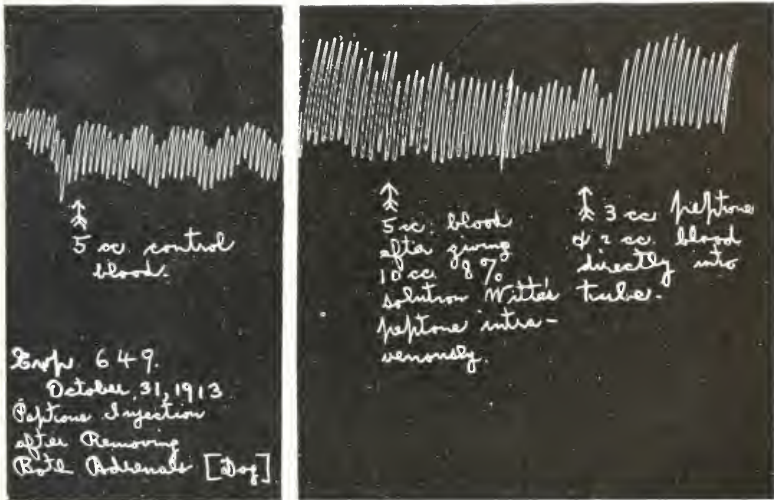 5 cc. control
blood.
Exp. 649.
October, 31, 1913
Peptone Injection
after Removing
Both Adrenals [Dog]
5 cc. blood
after giving
10 cc. 8%
solution Witte's
peptone intra-
venously.
3 cc peptone
& 2 cc. blood
directly into
tube.